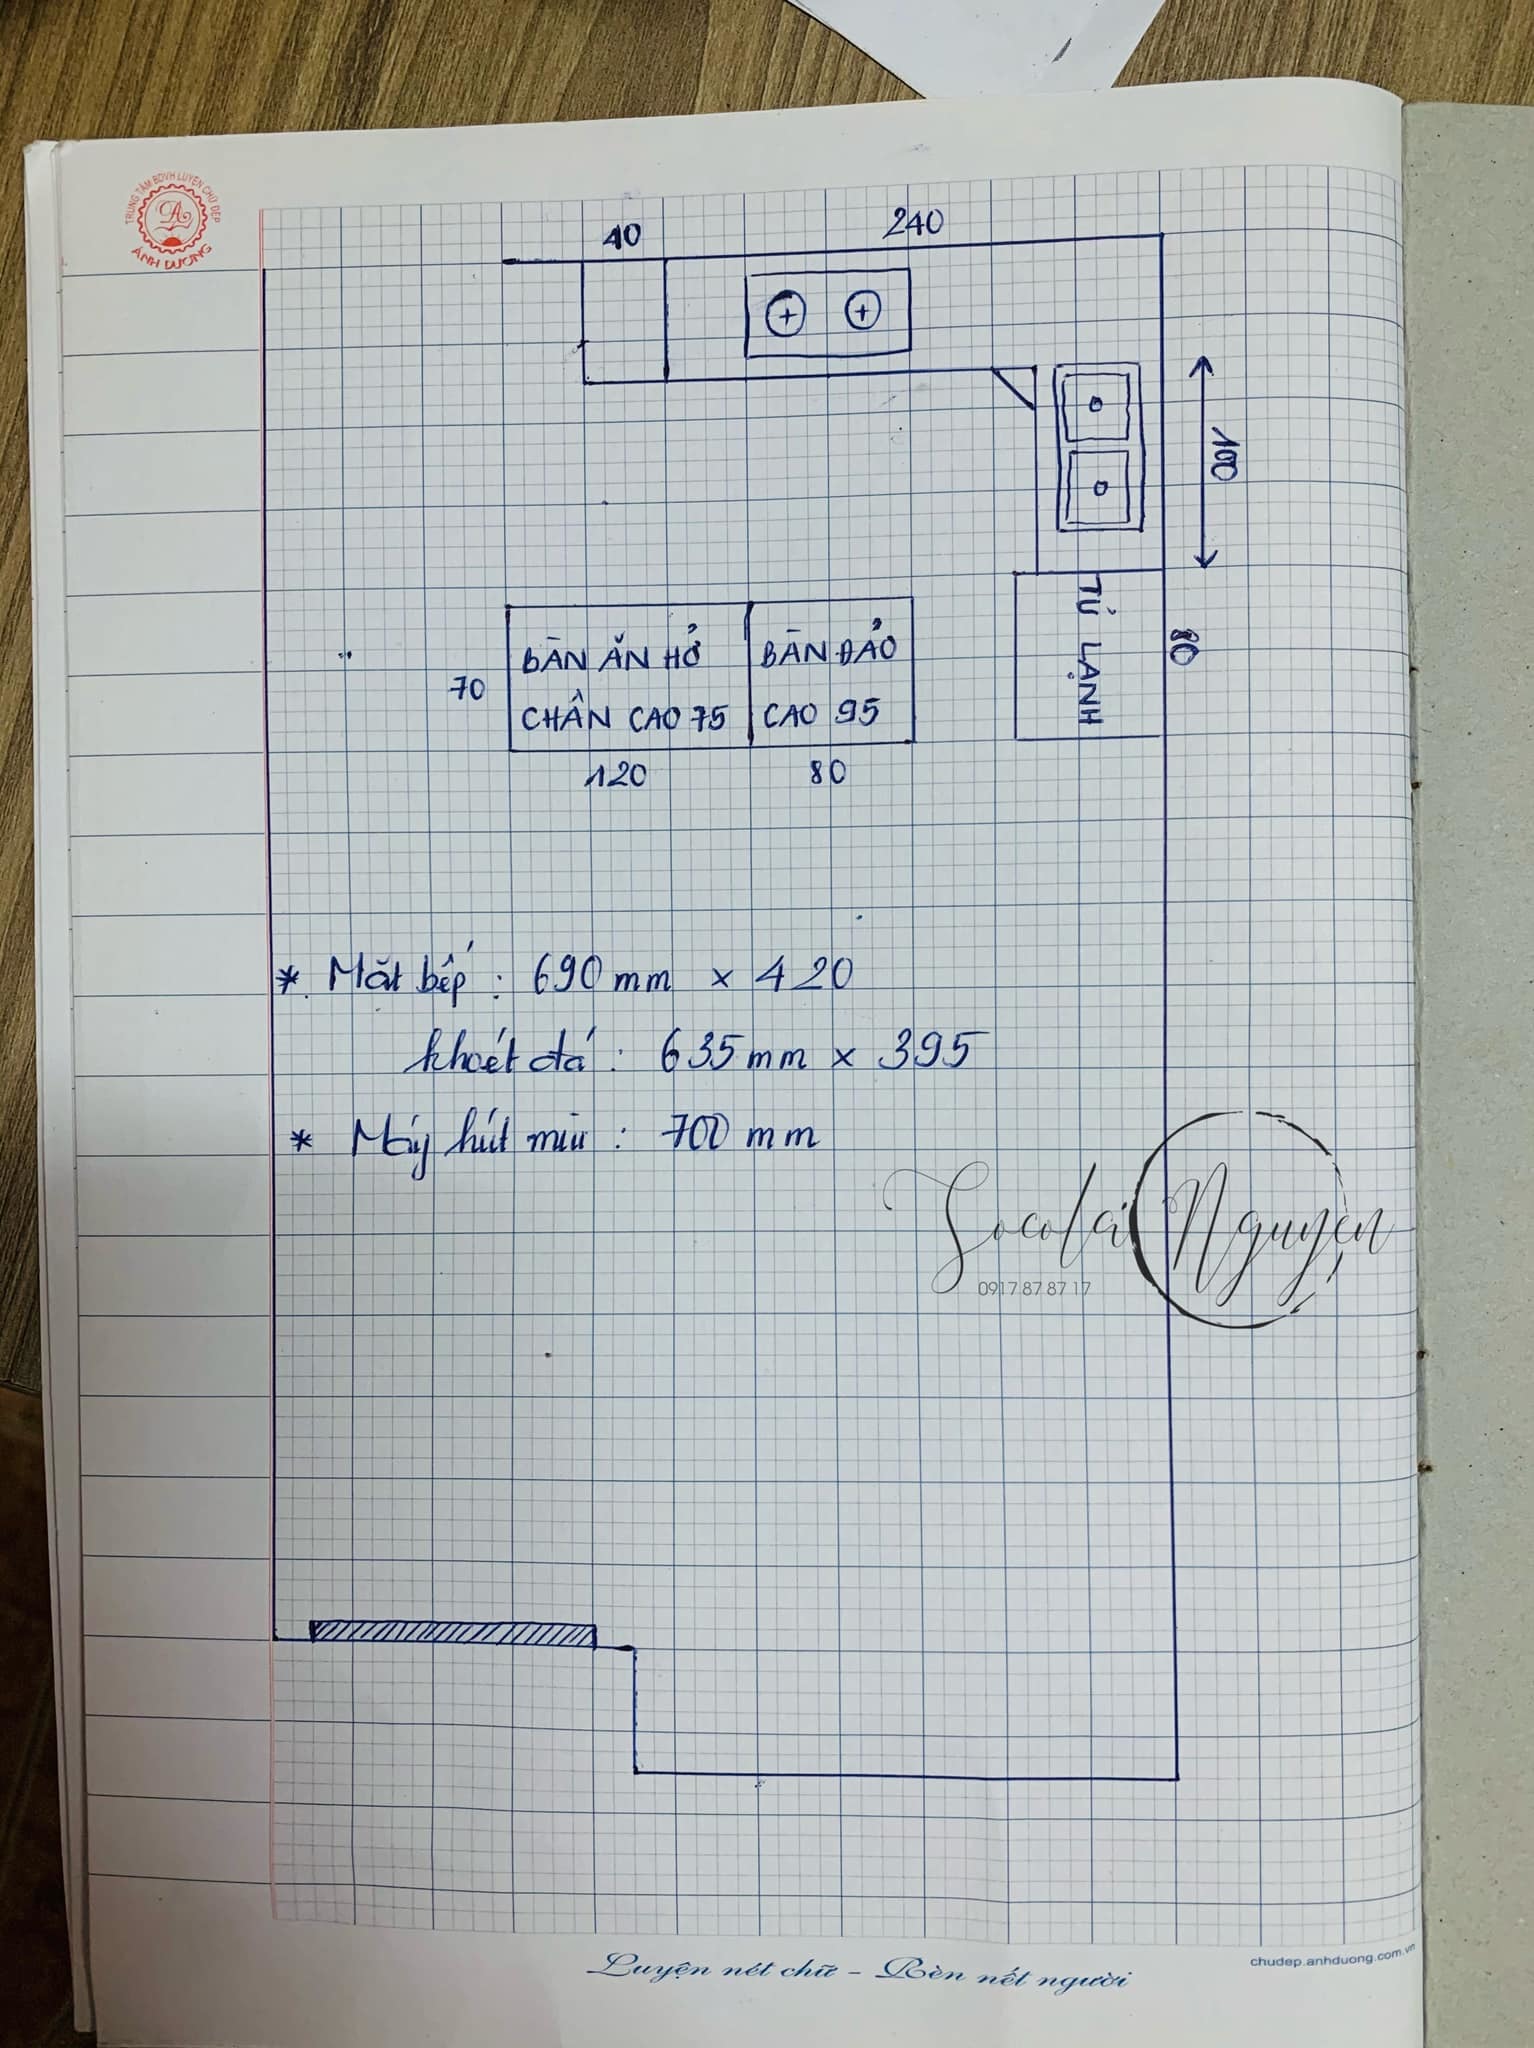 TRUNG TÂM BDVH LUYỆN CHỮ ĐẸP
ÁNH DƯƠNG
40
240
100
BÀN ĂN HỞ
CHÂN CAO 75
BÀN ĐẢO
CAO 95
TỦ LẠNH
80
70
120
80
* Mặt bếp : 690 mm × 420
khoét đá : 635 mm × 395
* Máy hút mùi : 700 mm
Nguyễn
0917 87 87 17
Luyện nét chữ - Rèn nết người
chudep.anhduong.com.vn